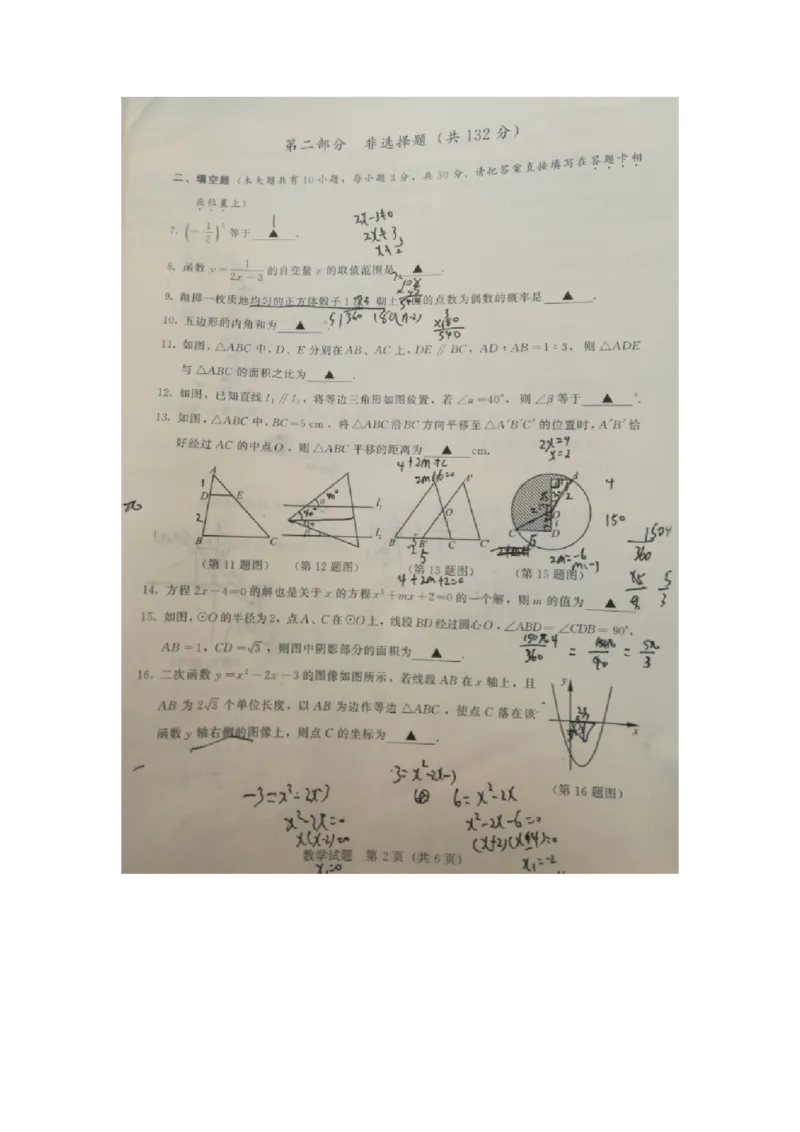 第二部分 非选择题(共 132 分)
二、填空题(本大题共有 10 小题,每小题 3 分,共 30 分.请把答案直接填写在答题卡相
应位置上)
7. (-1/2)⁰ 等于 ▲ .
1
2x-3≠0
2x≠3
x≠3/2
8. 函数 y=1/(2x-3) 的自变量 x 的取值范围是 ▲ .
9. 抛掷一枚质地均匀的正方体骰子 1 朝上 的点数为偶数的概率是 ▲ .
10. 五边形的内角和为 ▲ .
5 360 180(n-2)
540
11. 如图,△ABC 中,D、E 分别在 AB、AC 上,DE∥BC,AD:AB=1:3, 则 △ADE
与 △ABC 的面积之比为 ▲ .
12. 如图,已知直线 l₁∥l₂,将等边三角形如图放置,若 ∠α=40°, 则 ∠β 等于 ▲ °.
13. 如图,△ABC 中,BC=5 cm,将 △ABC 沿 BC 方向平移至 △A′B′C′ 的位置时,A′B′ 恰
好经过 AC 的中点 O,则 △ABC 平移的距离为 ▲ cm.
2x=4
x=2
A
1
D E
2
B C
40°
l₁
l₂
A′
O
B B′ C C′
A
O
C D
4
150
360
5
3
(第 11 题图) (第 12 题图) (第 13 题图) (第 15 题图)
2m=-6
m=-3
4+2m+2=0
14. 方程 2x-4=0 的解也是关于 x 的方程 x²+mx+2=0 的一个解,则 m 的值为 ▲
15. 如图,⊙O 的半径为 2,点 A、C 在 ⊙O 上,线段 BD 经过圆心 O,∠ABD=∠CDB=90°,
AB=1,CD=√3,则图中阴影部分的面积为 ▲ .
16. 二次函数 y=x²-2x-3 的图像如图所示,若线段 AB 在 x 轴上,且
AB 为 2√3 个单位长度,以 AB 为边作等边 △ABC,使点 C 落在该
函数 y 轴右侧的图像上,则点 C 的坐标为 ▲ .
y
x
(第 16 题图)
3=x²-2x-3
6=x²-2x
x²-2x-6=0
x₁=-2
x²-2x=0
x(x-2)=0
x₁=0
数学试题 第 2 页(共 6 页)